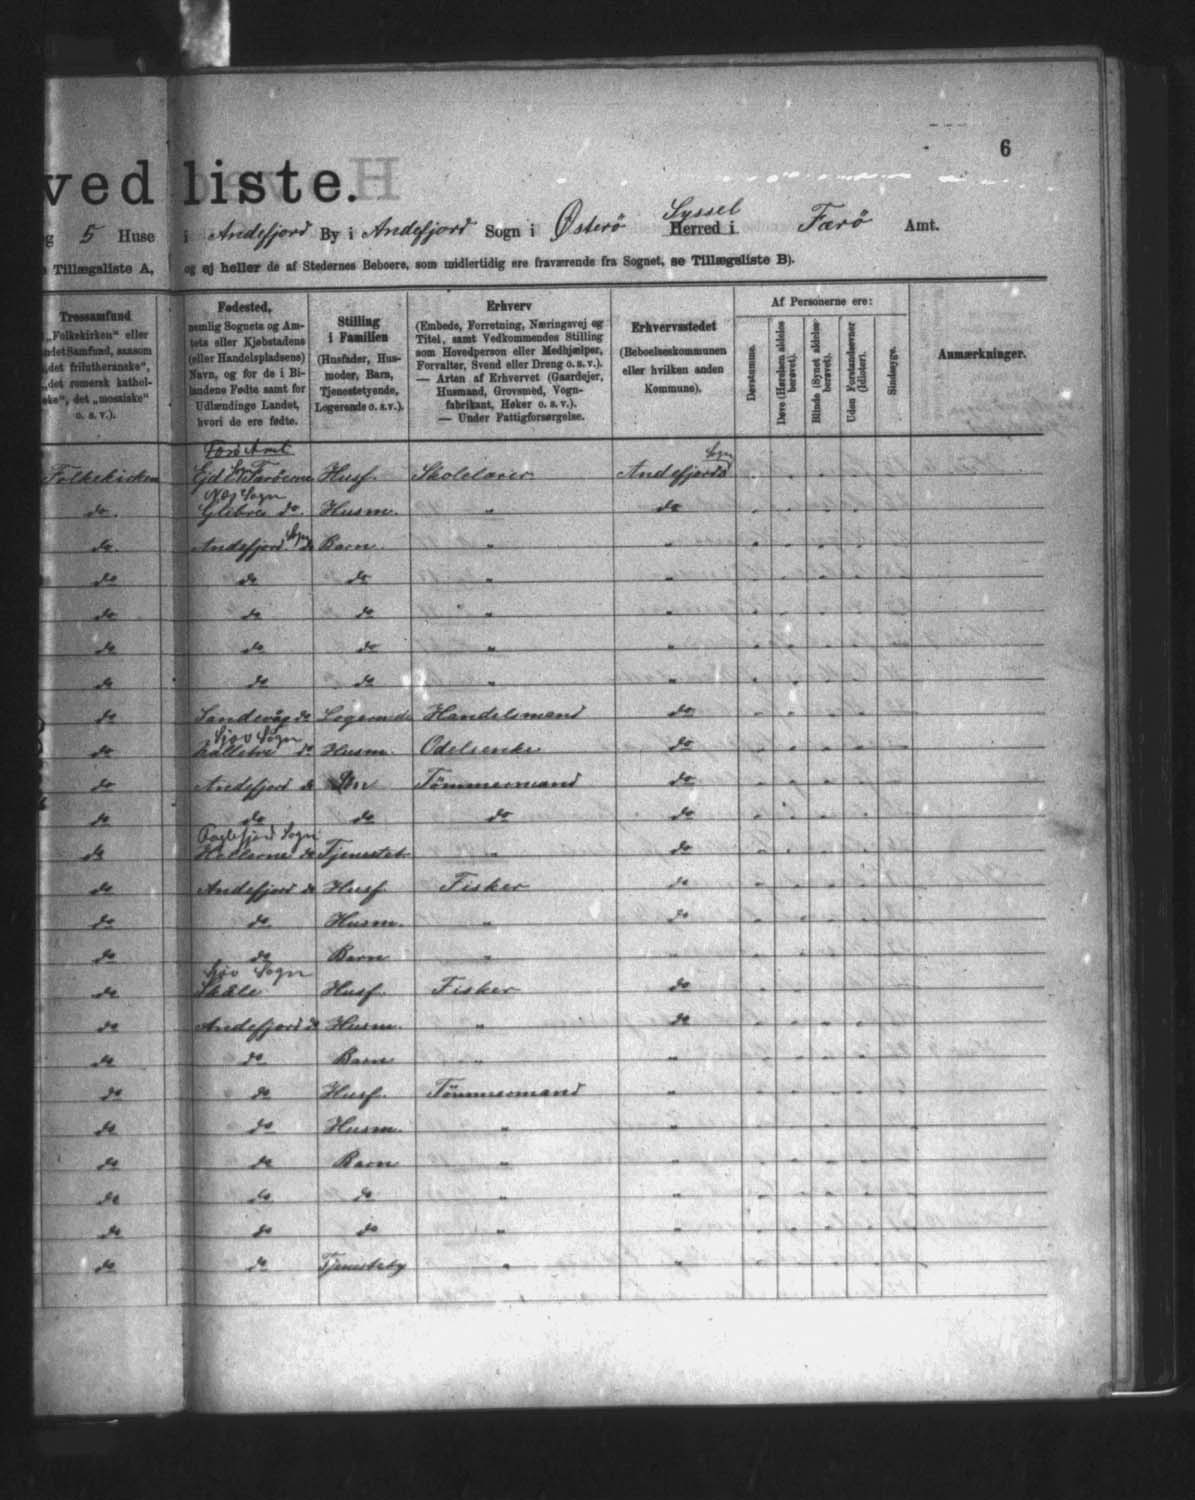 6
ved liste.
g 5 Huse i Andefjord By i Andefjord Sogn i Østerø Syssel Herred i Færø Amt.
Tillægsliste A, og ej heller de af Stedernes Beboere, som midlertidig ere fraværende fra Sognet, se Tillægsliste B).
Trossamfund
„Folkekirken“ eller
andet Samfund, saasom
„det frilutheranske“,
„det romersk kathol-
ske“, det „mosaiske“
o. s. v.).
Fødested,
nemlig Sognets og Am-
tets eller Kjøbstadens
(eller Handelspladsens)
Navn, og for de i Bi-
landene Fødte samt for
Udlændinge Landet,
hvori de ere fødte.
Stilling
i Familien
(Husfader, Hus-
moder, Barn,
Tjenestetyende,
Logerende o. s. v.).
Erhverv
(Embede, Forretning, Næringsvej og
Titel, samt Vedkommendes Stilling
som Hovedperson eller Medhjælper,
Forvalter, Svend eller Dreng o. s. v.).
— Arten af Erhvervet (Gaardejer,
Husmand, Grovsmed, Vogn-
fabrikant, Høker o. s. v.).
— Under Fattigforsørgelse.
Erhvervsstedet
(Beboelseskommunen
eller hvilken anden
Kommune).
Af Personerne ere:
Døvstumme.
Døve (Hørelsen aldeles berøvet).
Blinde (Synet aldeles berøvet).
Uden Forstandsevner (Idioter).
Sindssyge.
Anmærkninger.
Færø Amt
Folkekirken Ejd Sn Færøerne Husf. Skolelærer Andefjords Sogn
Næs Sogn
do. Glibre do. Husm. " do
do. Andefjord Sogn do Barn. " "
do do do " "
do do do " "
do do do " "
do do do " "
do Sandevåg do Logerende Handelsmand do
Sjov Sogn
do do Husm. Odelsenke do
do Andefjord do Søn Tømmermand do
do do do do do
Sogn
do do Tjenestet. " do
do Andefjord do Husf. Fisker do
do do Husm. " do
do do Barn "
Sjov Sogn
do Skåle Husf. Fisker do
do Andefjord do Husm. " do
do do Barn " "
do do Husf. Tømmermand "
do do Husm. " "
do do Barn " "
do do do " "
do do do " "
do do Tjenestety " "